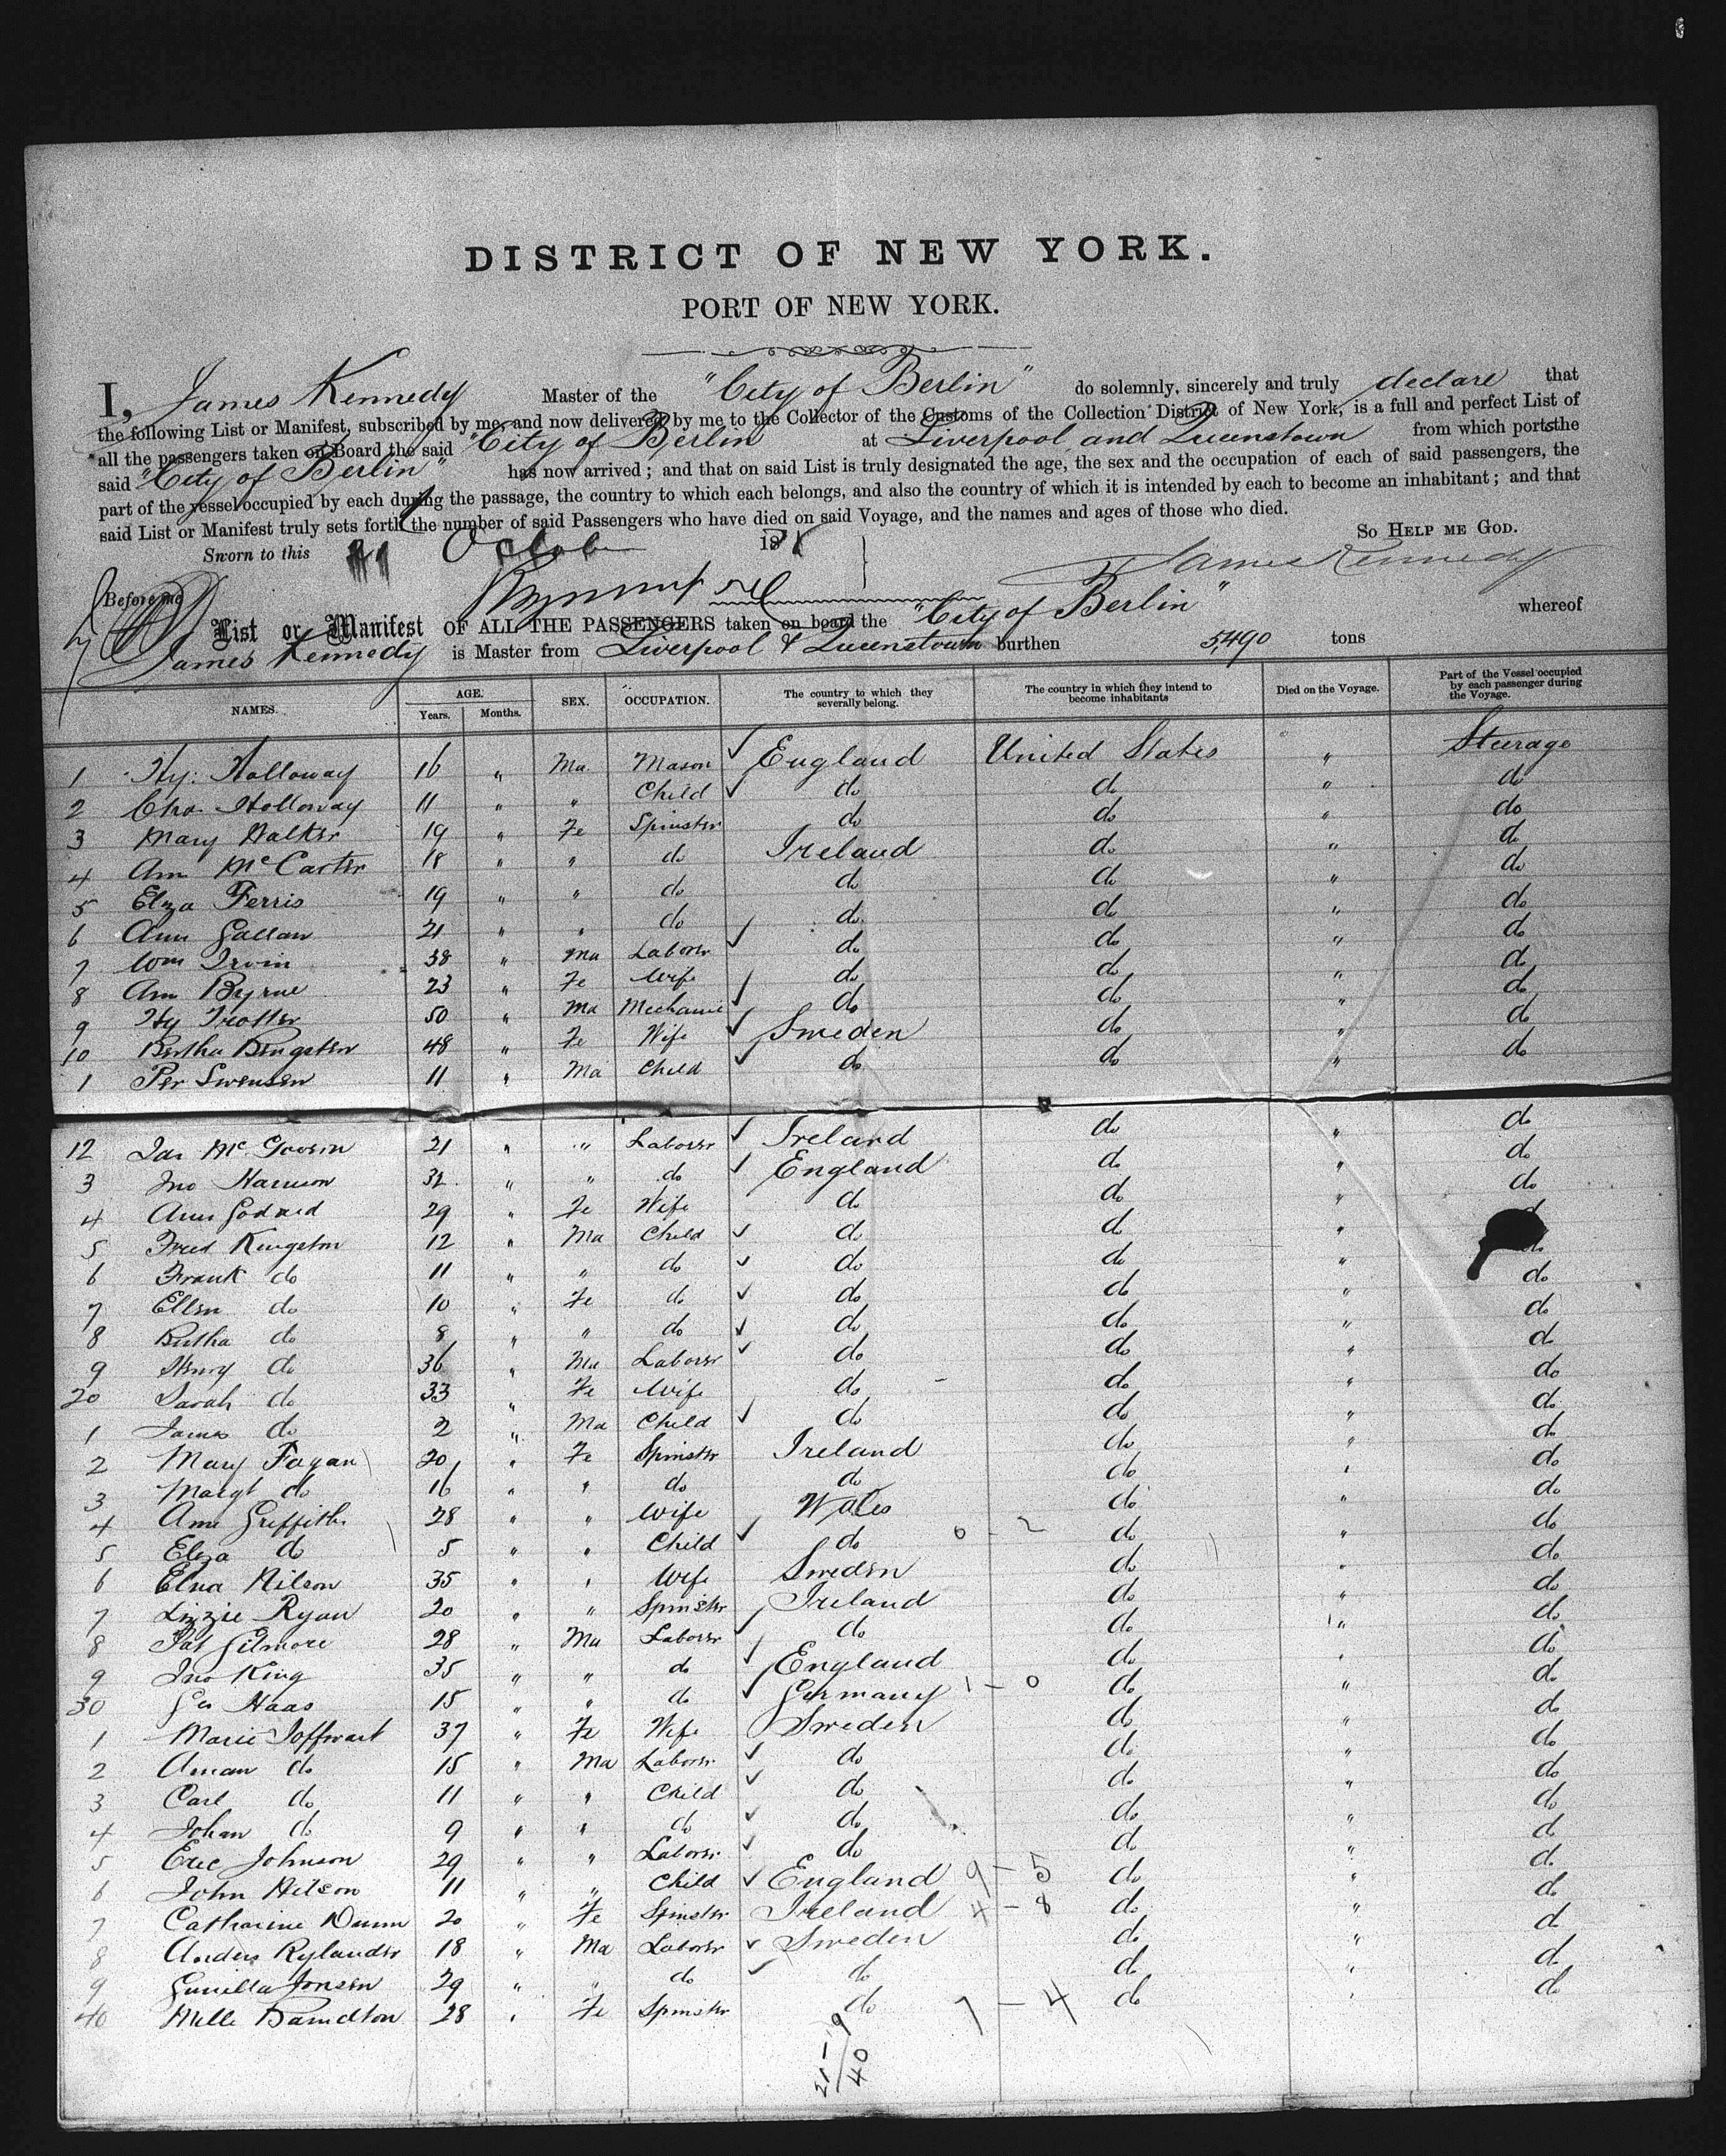 DISTRICT OF NEW YORK.
PORT OF NEW YORK.
I, James Kennedy Master of the "City of Berlin" do solemnly, sincerely and truly declare that
the following List or Manifest, subscribed by me, and now delivered by me to the Collector of the Customs of the Collection District of New York, is a full and perfect List of
all the passengers taken on Board the said "City of Berlin" at Liverpool and Queenstown from which ports the
said "City of Berlin" has now arrived; and that on said List is truly designated the age, the sex and the occupation of each of said passengers, the
part of the vessel occupied by each during the passage, the country to which each belongs, and also the country of which it is intended by each to become an inhabitant; and that
said List or Manifest truly sets forth the number of said Passengers who have died on said Voyage, and the names and ages of those who died.
So HELP ME GOD.
Sworn to this October 18
James Kennedy
Before me
List or Manifest OF ALL THE PASSENGERS taken on board the "City of Berlin" whereof
James Kennedy is Master from Liverpool & Queenstown burthen 5,490 tons
NAMES. AGE. Years. Months. SEX. OCCUPATION. The country to which they severally belong. The country in which they intend to become inhabitants Died on the Voyage. Part of the Vessel occupied by each passenger during the Voyage.
1 Hy: Holloway 16 " Ma. Mason ✓ England United States " Steerage
2 Chs. Holloway 11 " " Child ✓ do do " do
3 Mary Walker 19 " Fe Spinster do do " do
4 Ann McCarter 18 " " do Ireland do " do
5 Elza Ferris 19 " " do do do " do
6 Ann Gallan 21 " " do do do " do
7 Wm Irvin 38 " Ma Laborer ✓ do do " do
8 Ann Byrne 23 " Fe Wife do do " do
9 Hy Trotter 50 " Ma Mechanic ✓ do do " do
10 Bertha Bengsten 48 " Fe Wife ✓ Sweden do " do
1 Per Swensen 11 " Ma Child ✓ do do " do
12 Jas McGovern 21 " " Laborer ✓ Ireland do " do
3 Jno Harrison 32 " " do ✓ England do " do
4 Ann Godard 29 " Fe Wife do do " do
5 Fred Kingston 12 " Ma Child ✓ do do "
6 Frank do 11 " " do ✓ do do " do
7 Ellen do 10 " Fe do ✓ do do " do
8 Bertha do 8 " " do ✓ do do " do
9 Henry do 36 " Ma Laborer ✓ do do " do
20 Sarah do 33 " Fe Wife do do " do
1 James do 2 " Ma Child ✓ do do " do
2 Mary Fagan 20 " Fe Spinster Ireland do " do
3 Margt do 16 " " do do do " do
4 Ann Griffiths 28 " " Wife Wales do " do
5 Eliza do 5 " " Child ✓ do 0 - 2 do " do
6 Elna Nilson 35 " " Wife Sweden do " do
7 Lizzie Ryan 20 " " Spinster Ireland do " do
8 Pat Gilmore 28 " Ma Laborer ✓ do do " do
9 Jno King 35 " " do ✓ England do " do
30 Haas 15 " " do ✓ Germany 1 - 0 do " do
1 Marie Soffwart 37 " Fe Wife Sweden do " do
2 do 15 " Ma Laborer ✓ do do " do
3 Carl do 11 " " Child ✓ do do " do
4 Johan do 9 " " do ✓ do do " do
5 Eric Johnson 29 " " Laborer ✓ do do " do
6 John Nilson 11 " " Child ✓ England 9 - 5 do " do
7 Catharine Dunn 20 " Fe Spinster Ireland 4 - 8 do " do
8 Anders Rylander 18 " Ma Laborer ✓ Sweden do " do
9 Gunilla Jonsen 29 " " do ✓ do do " do
40 28 " Fe Spinster do 7 - 4 do " do
21 - 19
40